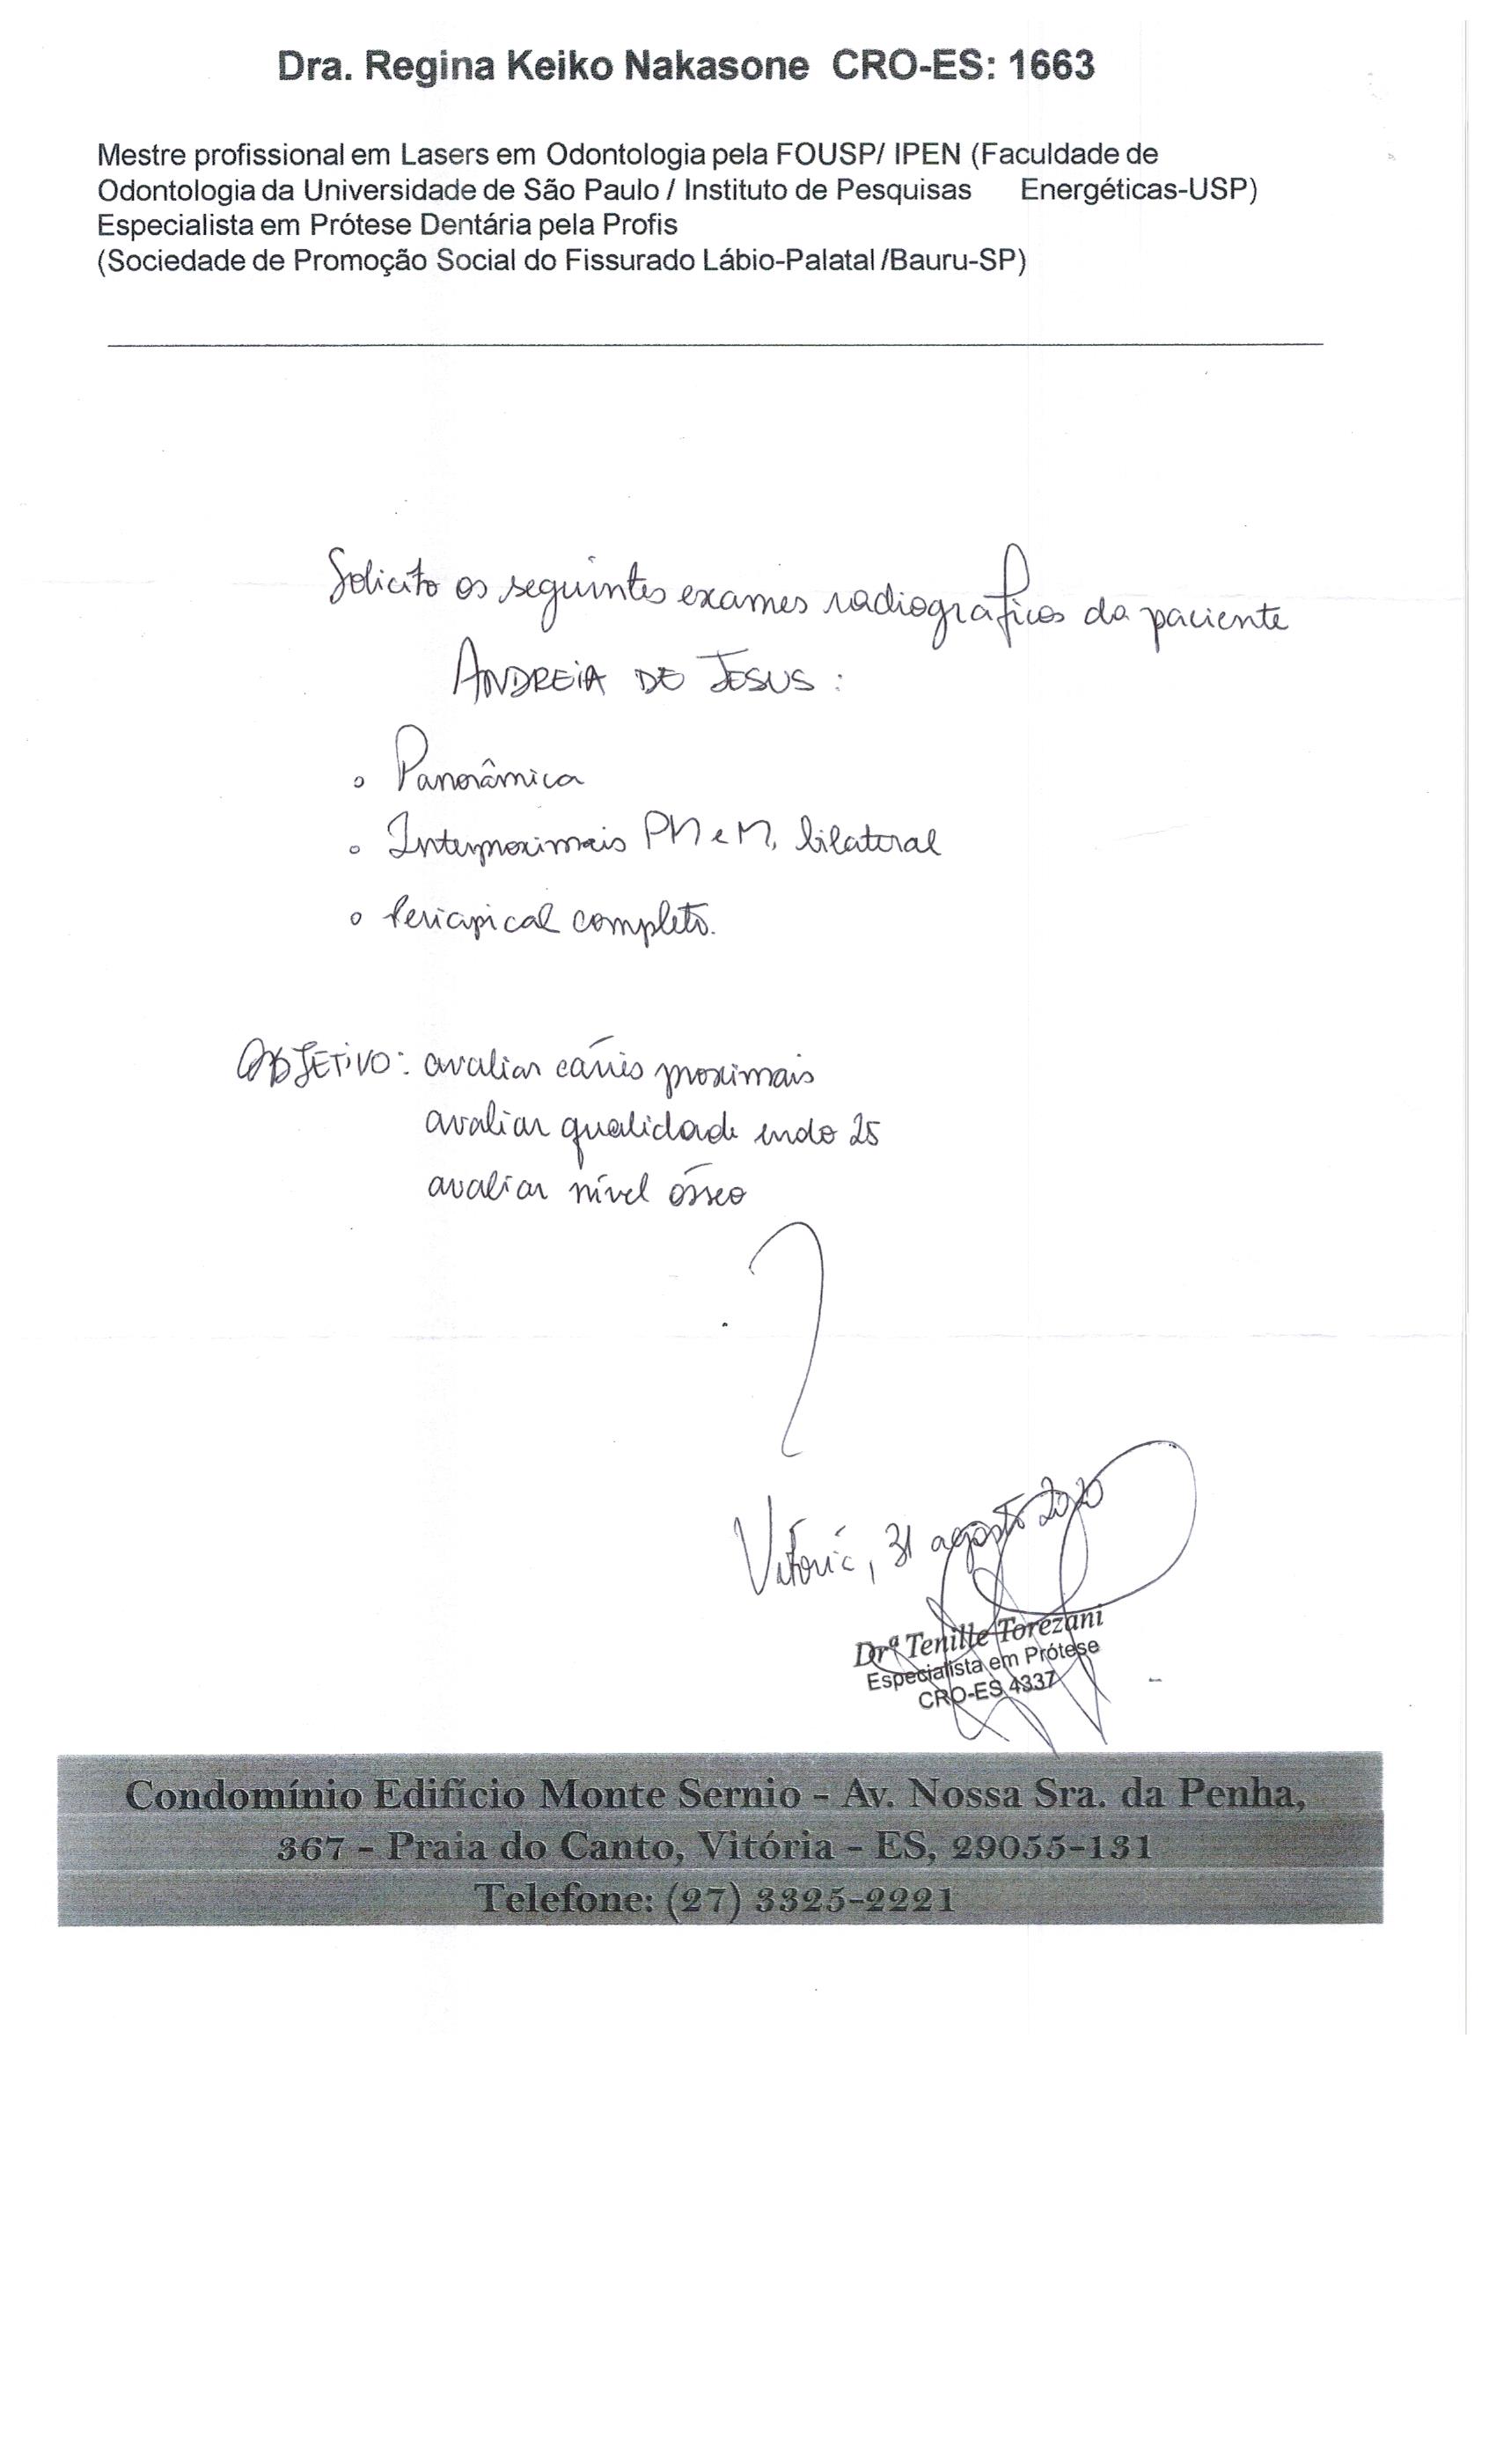 Dra. Regina Keiko Nakasone CRO-ES: 1663
Mestre profissional em Lasers em Odontologia pela FOUSP/ IPEN (Faculdade de
Odontologia da Universidade de São Paulo / Instituto de Pesquisas Energéticas-USP)
Especialista em Prótese Dentária pela Profis
(Sociedade de Promoção Social do Fissurado Lábio-Palatal /Bauru-SP)
Solicito os seguintes exames radiográficos da paciente
ANDREIA DE JESUS:
o Panorâmica
o Interproximais PM e M, bilateral
o Periapical completo.
OBJETIVO: avaliar cáries proximais
avaliar qualidade endo 25
avaliar nível ósseo
Vitória, 31 agosto 2020
Drª Tenille Torezani
Especialista em Prótese
CRO-ES 4337
Condomínio Edifício Monte Sernio - Av. Nossa Sra. da Penha,
367 - Praia do Canto, Vitória - ES, 29055-131
Telefone: (27) 3325-2221